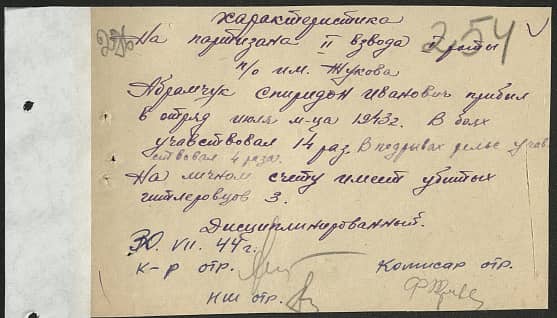 Характеристика
254
На партизана II взвода I роты
п/о им. Жукова
Абрамчук Спиридон Иванович прибыл
в отряд июля м-ца 1943г. В боях
учавствовал 14 раз. В подрывах рельс учав
ствовал 4 раза.
На личном счету имеет убитых
гитлеровцов 3.
Дисциплинированный.
30. VII. 44г.
К-р отр.
Комисар отр.
НШ отр.